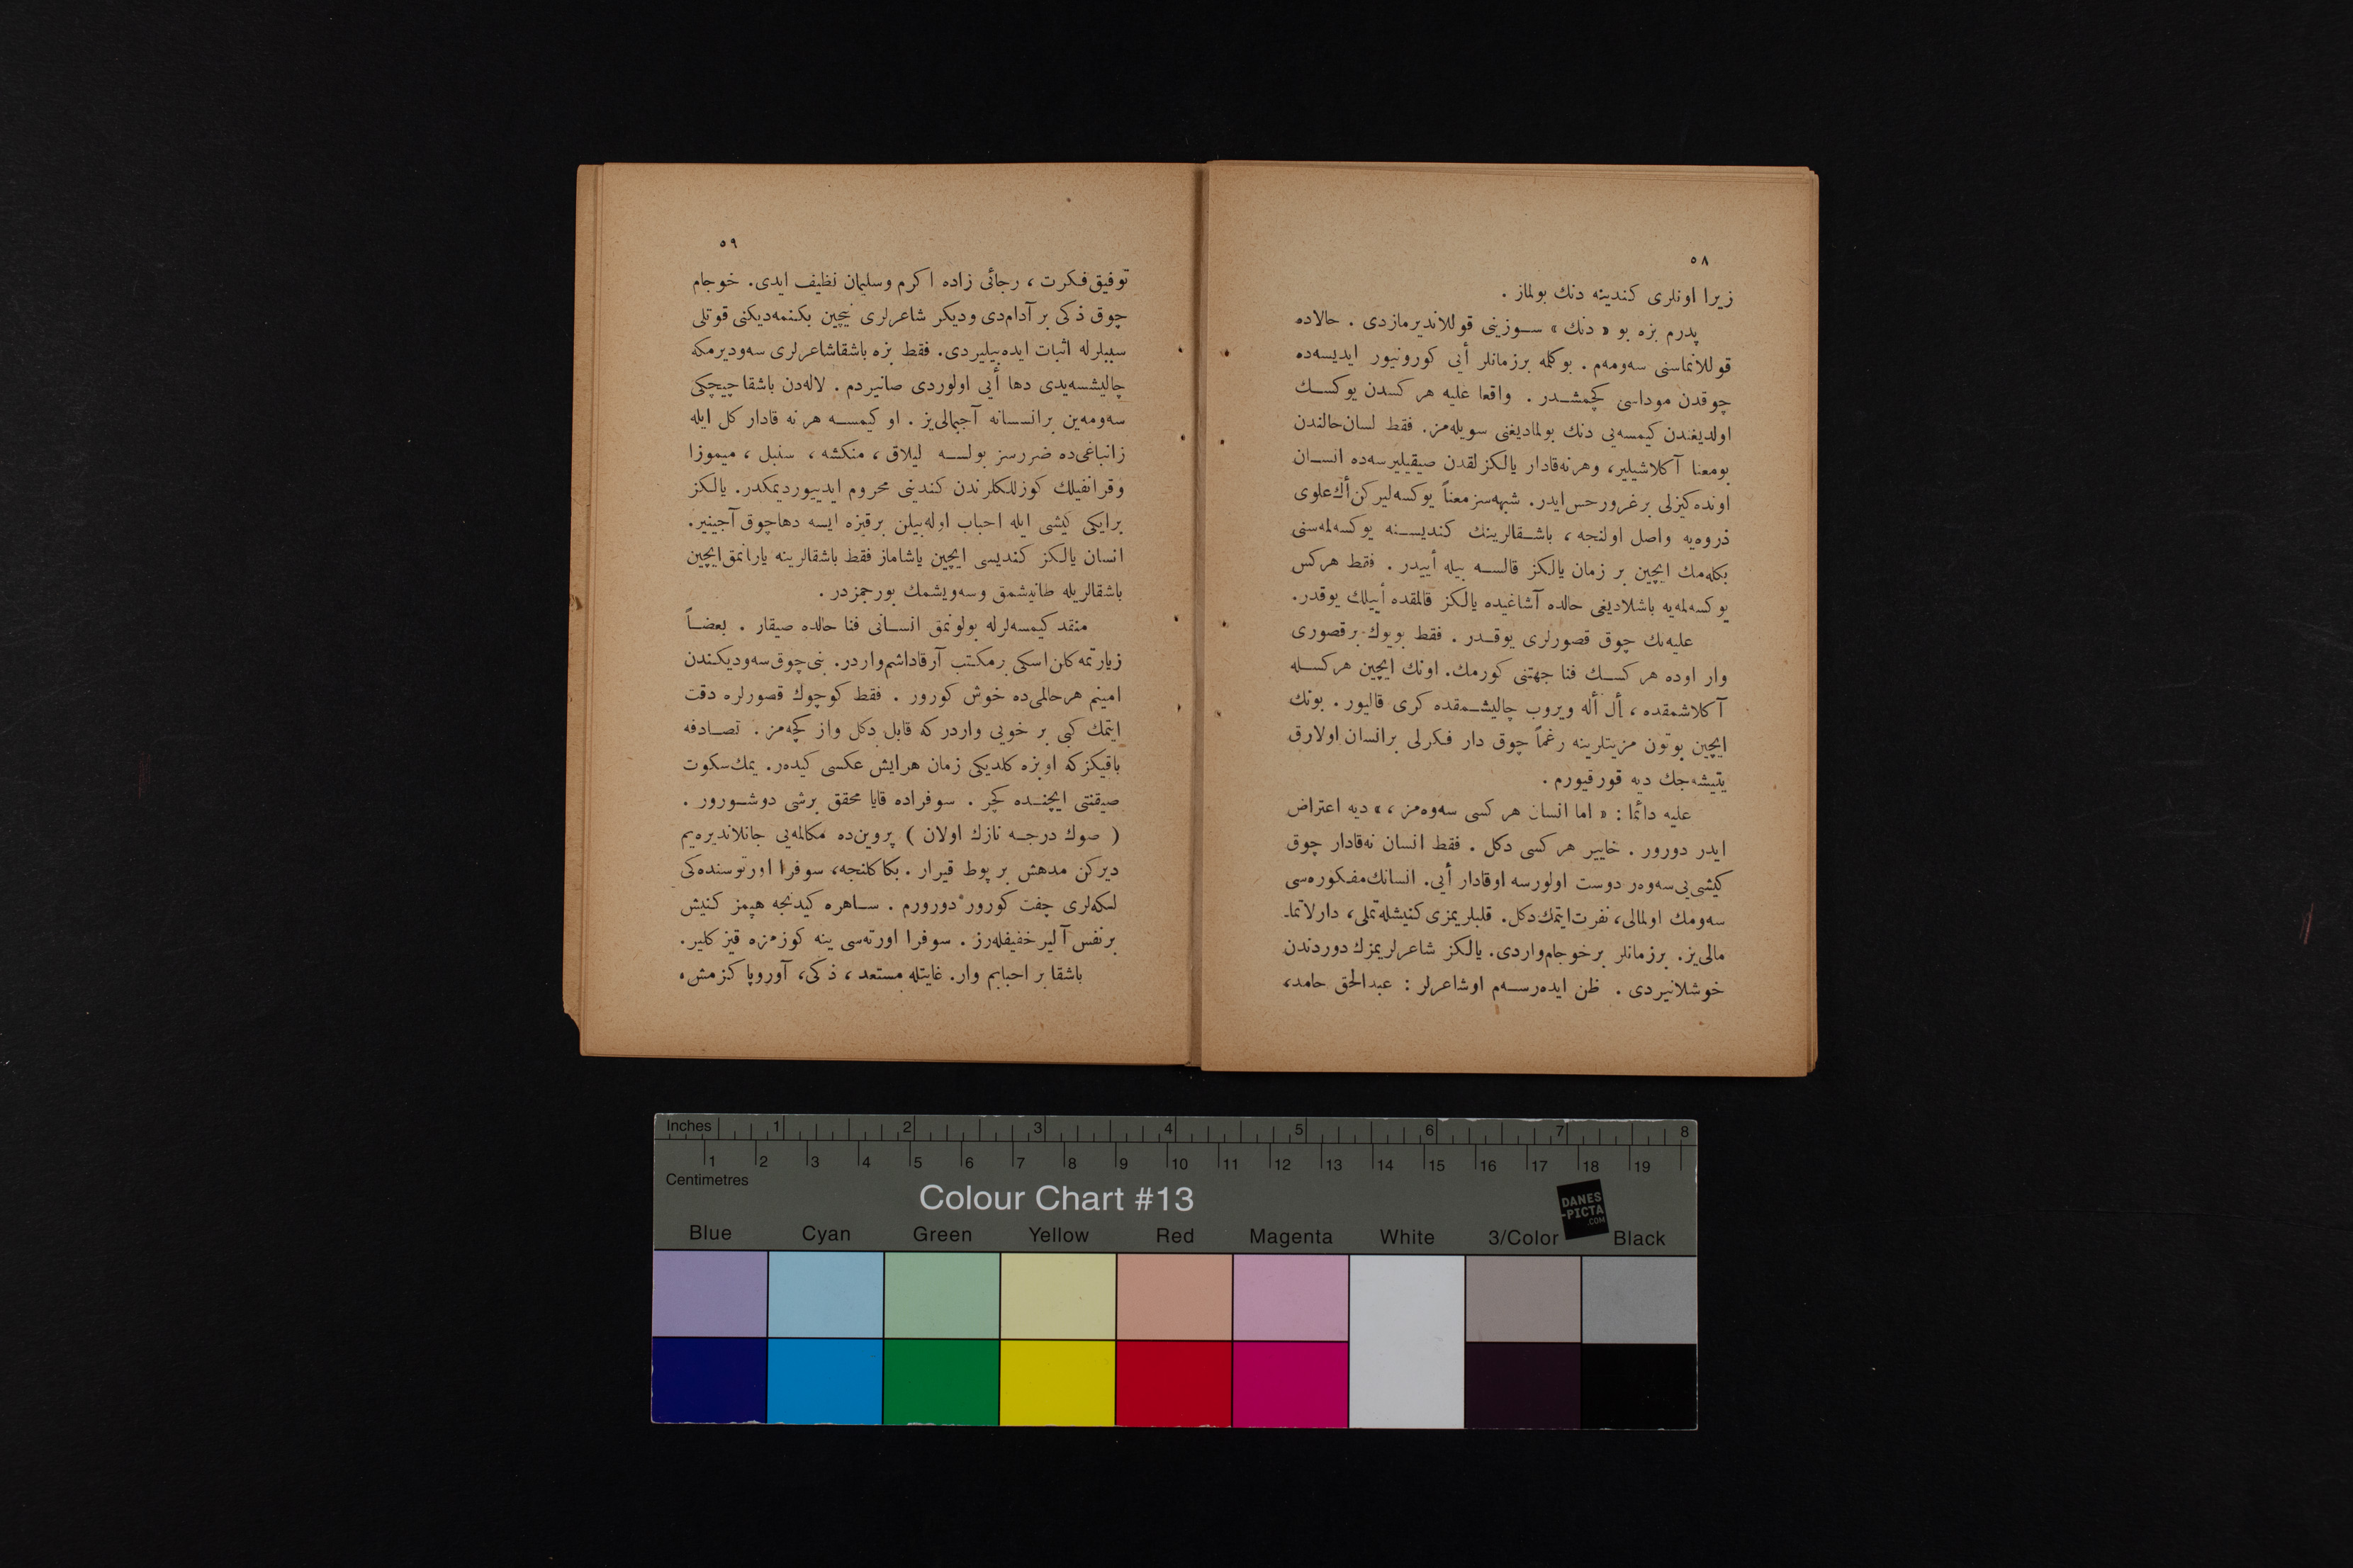 ٥٨
زيرا اونلرى كندينه دنك بولماز .
پدرم بزه بو « دنك » ســوزينى قوللانديرمازدى . حالاده
قوللانماسنى سه‌ومه‌م . بوكلمه برزمانلر أيى كورونيور ايديسه‌ده
چوقدن موداسى كچمشــدر . واقعا عليه هر كسدن يوكســك
اولديغندن كيمسه‌يى دنك بولماديغنى سويله‌مز. فقط لسان‌حالندن
بومعنا آكلاشيلير، وهرنه‌قادار يالكزلقدن صيقيليرسه‌ده انســان
اونده‌كيزلى برغرورحس‌ايدر. شبهه‌سزمعناً يوكسه‌ليركن‌أك‌علوى
ذروه‌يه واصل اولنجه ، باشــقالرينك كنديســنه يوكسه‌لمه‌سنى
بكله‌مك ايچين بر زمان يالكز قالســه بيله أييدر . فقط هركس
يوكسه‌لمه‌يه باشلاديغى حالده آشاغيده يالكز قالمقده أييلك يوقدر.
عليه‌نك چوق قصورلرى يوقــدر . فقط بويوك برقصورى
وار اوده هر كســك فنا جهتنى كورمك. اونك ايچين هركســله
آكلاشمقده ، أل أله ويروب چاليشــمقده كرى قاليور . بونك
ايچين بوتون مزيتلرينه رغماً چوق دار فكرلى برانسان اولارق
يتيشه‌جك ديه قورقيورم .
عليه دائما : « اما انسان هر كسى سه‌وه‌مز ، » ديه اعتراض
ايدر دورور . خايير هر كسى دكل . فقط انسان نه‌قادار چوق
كيشى‌يى‌سه‌وه‌ر دوست اولورسه اوقادار أيى. انسانك‌مفكوره‌سى
سه‌ومك اولمالى، نفرت‌ايتمك‌دكل. قلبلريمزى‌كنيشله‌تملى، دارلاتما-
مالى‌يز. برزمانلر برخوجام‌واردى. يالكز شاعرلريمزك دوردندن
خوشلانيردى . ظن ايده‌رســه‌م اوشاعرلر : عبدالحق حامد،
٥٩
توفيق‌فكرت ، رجائى زاده اكرم وسليمان نظيف ايدى. خوجام
چوق ذكى بر آدام‌دى وديكر شاعرلرى نيچين بكنمه‌ديكنى قوتلى
سببلرله اثبات ايده‌بيليردى. فقط بزه باشقاشاعرلرى سه‌وديرمكه
چاليشسه‌يدى دها أيى اولوردى صانيردم . لاله‌دن باشقا چيچكى
سه‌ومه‌ين برانســانه آجيمالى‌يز . او كيمســه هر نه قادار كل ايله
زانباغى‌ده ضررسز بولســه ليلاق ، منكشه ، سنبل ، ميموزا
وقرانفيلك كوزللكلرندن كندينى محروم ايدييورديمكدر. يالكز
برايكى كيشى ايله احباب اوله‌بيلن برقيزه ايسه دهاچوق آجينير.
انسان يالكز كنديسى ايچين ياشاماز فقط باشقالرينه يارانمق‌ايچين
باشقالريله طانيشمق وسه‌ويشمك بورجمزدر .
منقد كيمسه‌لرله بولونمق انســانى فنا حالده صيقار . بعضــاً
زيارتمه‌كلن‌اسكى برمكتب آرقاداشم‌واردر. بنى‌چوق‌سه‌وديكندن
امينم هرحالمى‌ده خوش كورور . فقط كوچوك قصورلره دقت
ايتمك كبى بر خويى واردركه قابل دكل واز كچه‌مز . تصــادفه
باقيكزكه اوبزه كلديكى زمان هرايش عكسى كيده‌ر. يمك‌سكوت
صيقنتى ايچنــده كچر . سوفراده قايا محقق برشى دوشــورور .
( صوك درجــه نازك اولان ) پروين‌ده مكالمه‌يى جانلانديره‌يم
ديركن مدهش بر پوط قيرار . بكاكلنجه، سوفرا اورتوسنده‌كى
لكه‌لرى چفت كورور دورورم . ســاهره كيدنجه هپمز كنيش
برنفس آلير خفيفله‌رز . سوفرا اورته‌سى ينه كوزمزه قيز كلير.
باشقا بر احبابم وار. غايتله مستعد ، ذكى، آوروپا كزمش،
Inches 1 2 3 4 5 6 7 8
1 2 3 4 5 6 7 8 9 10 11 12 13 14 15 16 17 18 19
Centimetres
Colour Chart #13
DANES
-PICTA
.COM
Blue Cyan Green Yellow Red Magenta White 3/Color Black